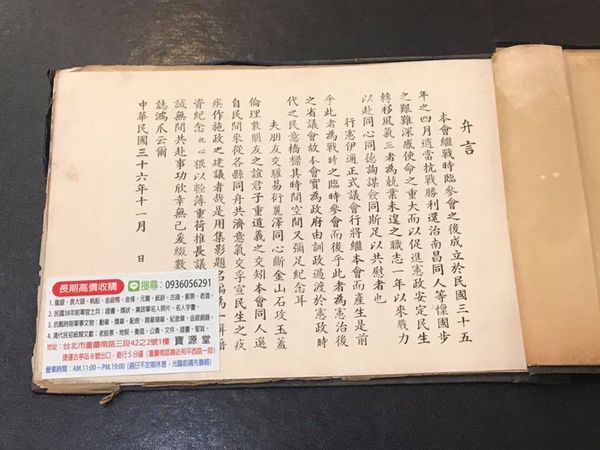 弁言
本會繼戰時臨參會之後成立於民國三十五
年之四月適當抗戰勝利還治南昌同人等懍國步
之艱難深感使命之重大而以促進憲政安定民生
轉移風氣三者為兢業未遑之職志一年以來戮力
以赴同心同德詢謀僉同斯足以共慰者也
行憲伊邇正式議會行將繼本會而產生是前
乎此者為戰時之臨時參會而後乎此者為憲治後
之省議會故本會實為政府由訓政過渡於憲政時
代之民意橋樑其時間空間又彌足紀念耳
夫朋友交雖易衍麗澤同心斷金山石攻玉蓋
倫理敦朋友之誼君子重道義之交矧本會同人選
自民間來從各縣同舟共濟意氣交孚宣民生之疾
疾作施政之建議者哉是用集影題名編為一輯藉
資紀念心猥以輇薄重荷推長議
誠無間共赴事功欣幸無已爰綴數
誌鴻爪云爾
中華民國三十六年十一月 日
長期高價收購
搜尋:0936056291
1. 龍銀、袁大頭、帆船、金銀幣、金條、元寶、紙鈔、古錢、郵票、老酒。
2. 民國38年前軍官士兵:證書、獎狀、黨政軍名人照片、名人字畫。
3. 抗戰時期軍事文物:勳章、獎章、配槍、肩章領章、紀念章、金銀銅器。
4. 清代民初紙類文獻:老股票、地契、奏摺、公債、文件、證書、聖旨。
地址:台北市重慶南路三段42之2號1樓 寶源堂
捷運古亭站8號出口,廊行5分鐘(重慶南路靠近和平西路一段)
營業時間:AM.11:00~PM.19:00 (週日不定期休息,光臨前請先聯絡)